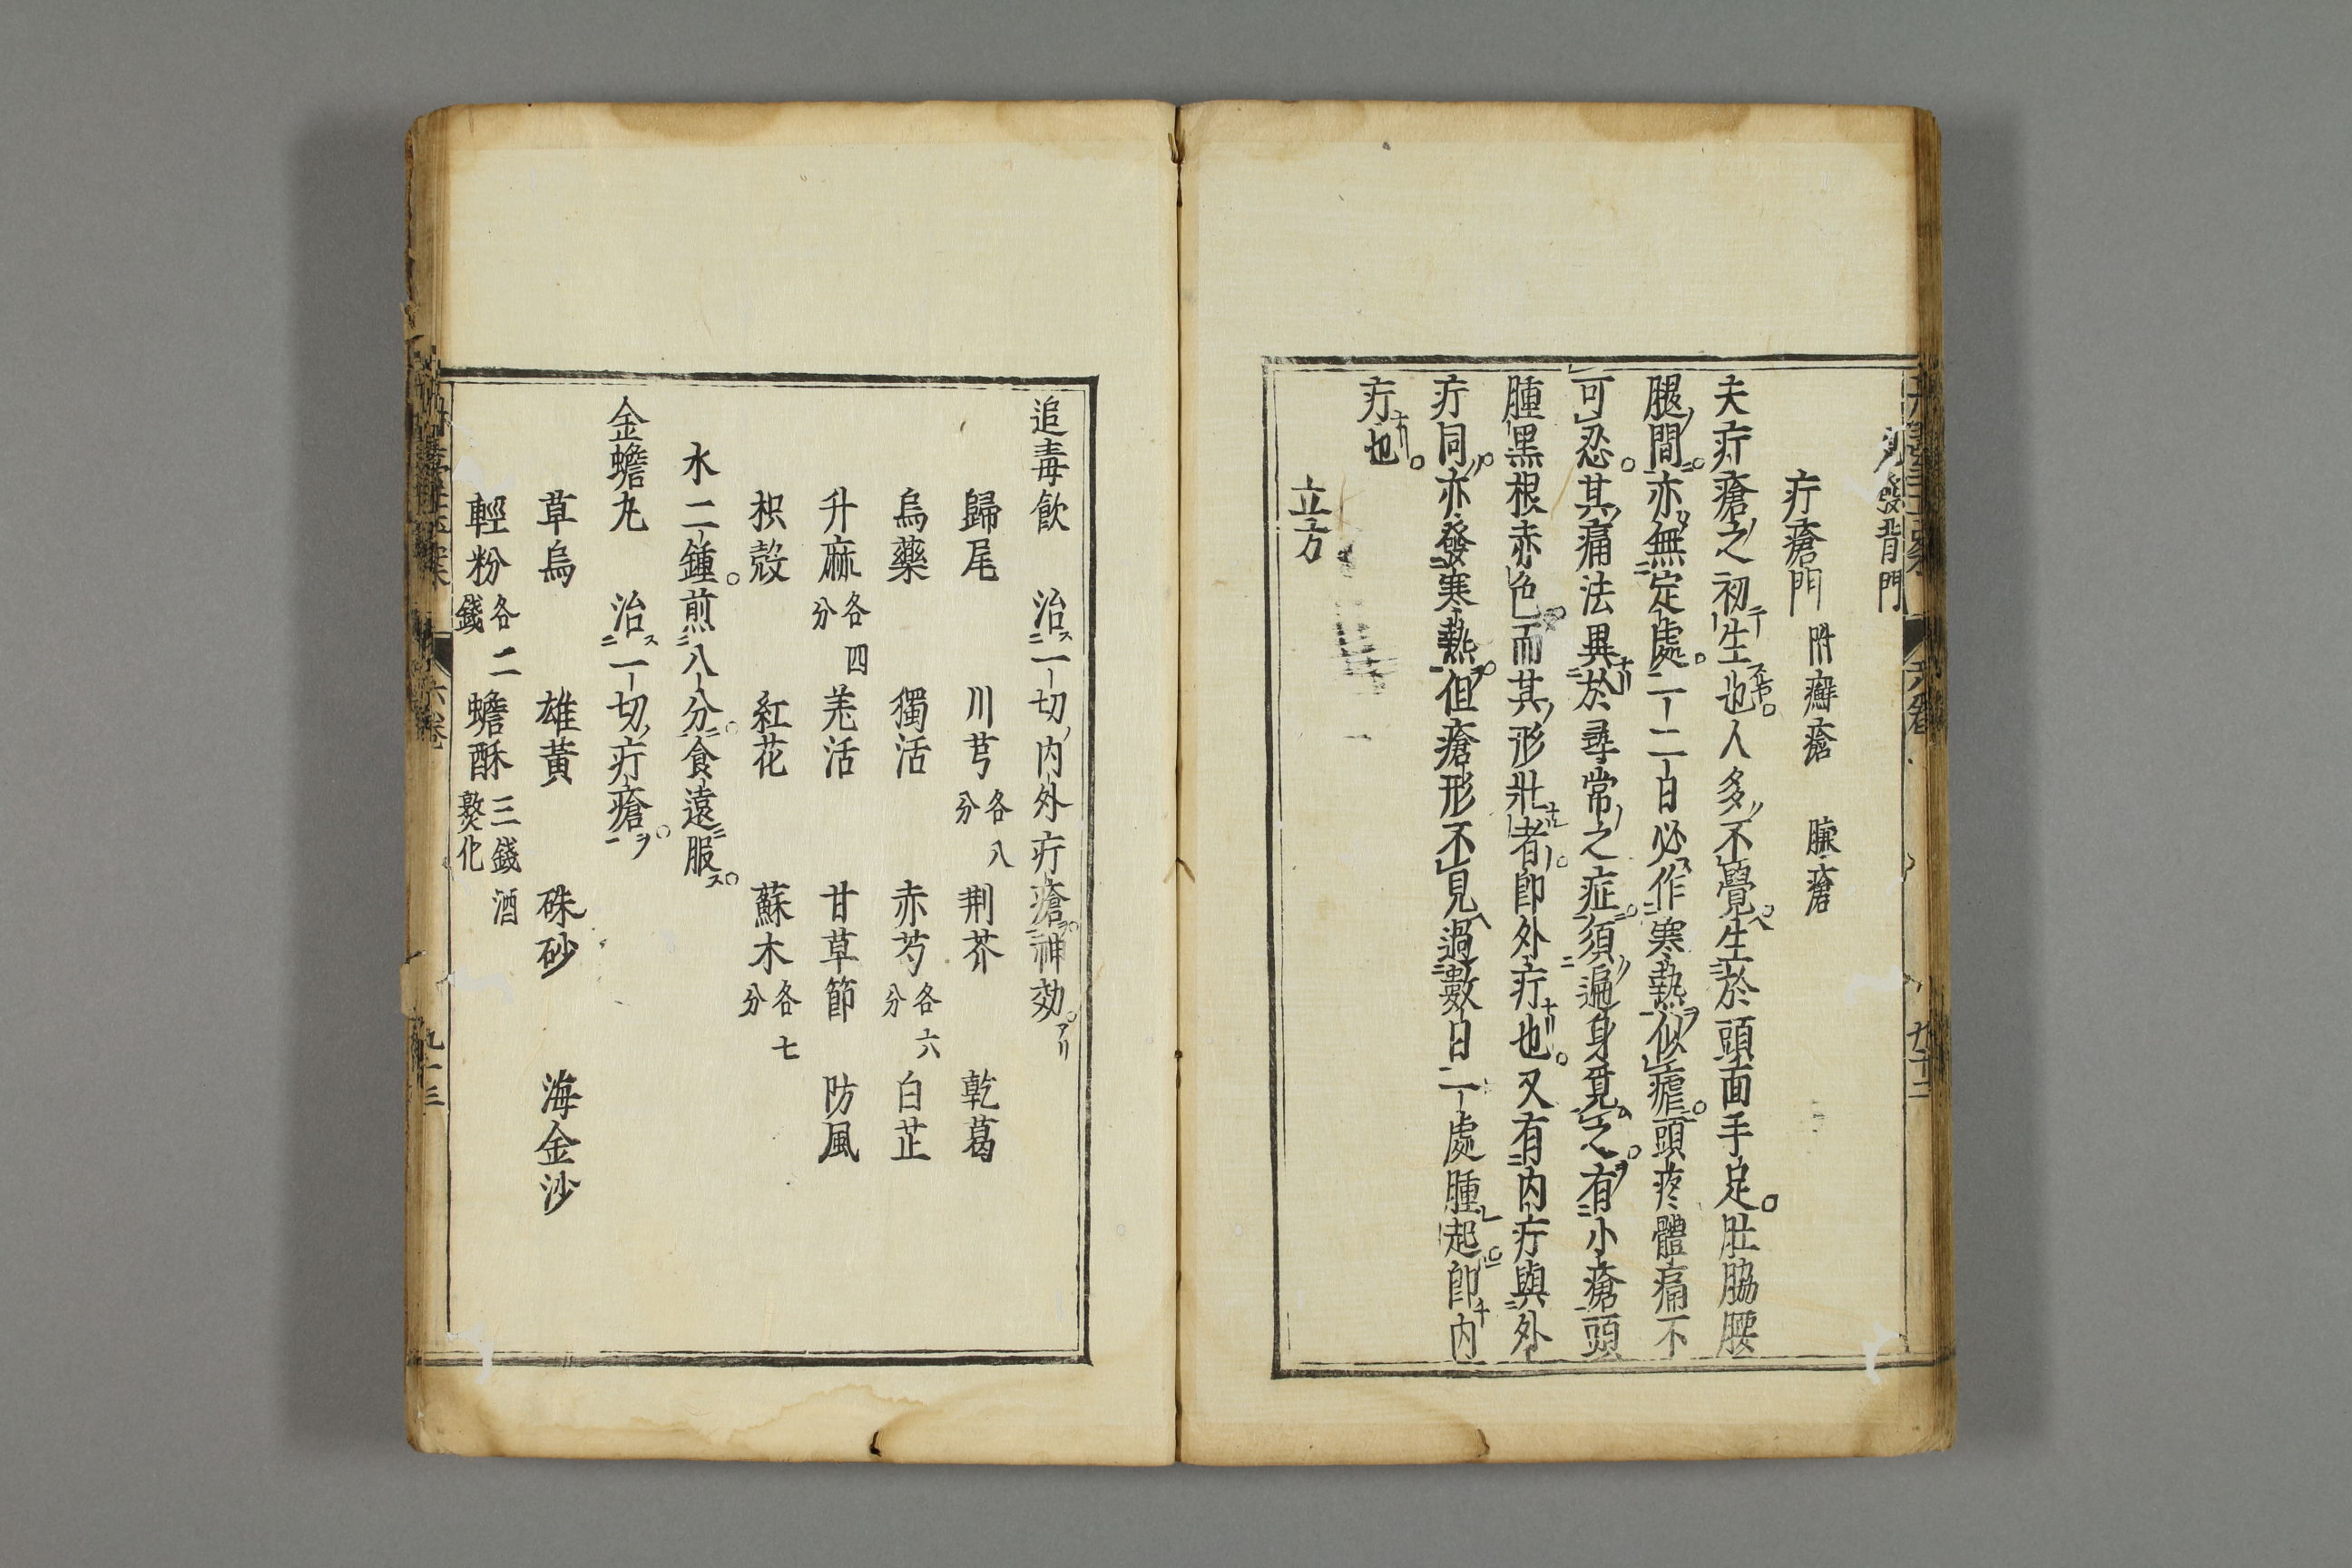 發背門
疔瘡門　附癬瘡　臁瘡
夫疔瘡之初生也人多不覺生於頭面手足肚脇腰
腿間亦無定處一二日必作寒熱似瘧頭疼體痛不
可忍其痛法異於尋常之症須遍身覓之有小瘡頭
腫黑根赤色而其形壯者卽外疔也又有內疔與外
疔同亦發寒熱但瘡形不見過數日一處腫起卽內
疔也
立方
追毒飲　治一切內外疔瘡神効
歸尾　川芎各八分　荆芥　乾葛
烏藥　獨活　赤芍各六分　白芷
升麻各四分　羗活　甘草節　防風
枳殼　紅花　蘇木各七分
水二鍾煎八分食遠服
金蟾丸　治一切疔瘡
草烏　雄黃　硃砂　海金沙
輕粉各二錢　蟾酥三錢酒熬化
六卷
九十三